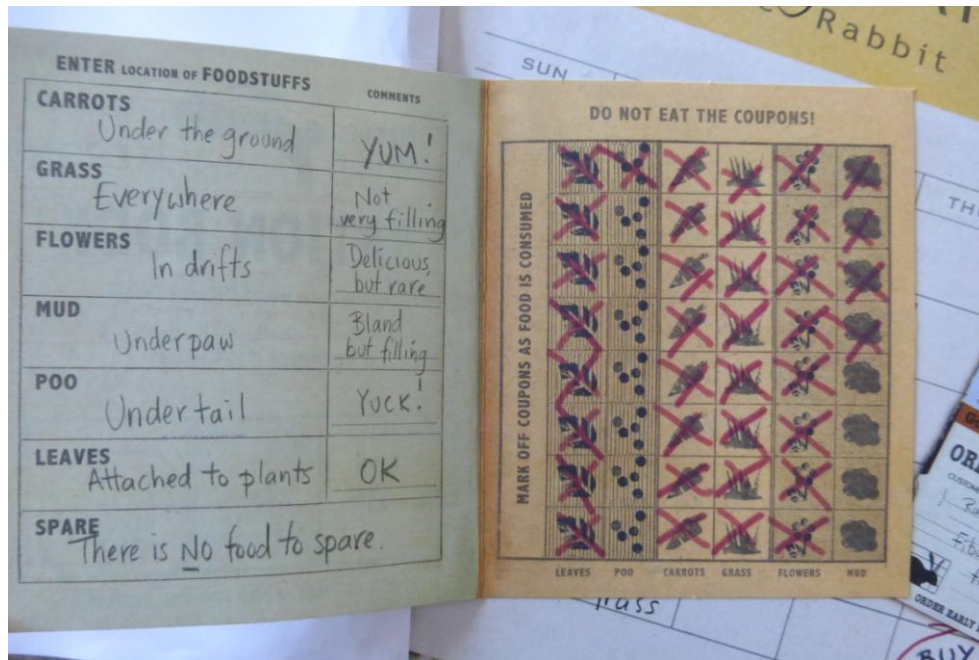 Rabbit
SUN
TH
ENTER LOCATION OF FOODSTUFFS
COMMENTS
CARROTS
Under the ground
YUM!
GRASS
Everywhere
Not
very filling
FLOWERS
In drifts
Delicious,
but rare
MUD
Underpaw
Bland
but filling
POO
Under tail
Yuck!
LEAVES
Attached to plants
OK
SPARE
There is NO food to spare.
DO NOT EAT THE COUPONS!
MARK OFF COUPONS AS FOOD IS CONSUMED
LEAVES POO CARROTS GRASS FLOWERS MUD
ORDER EARLY
BUY